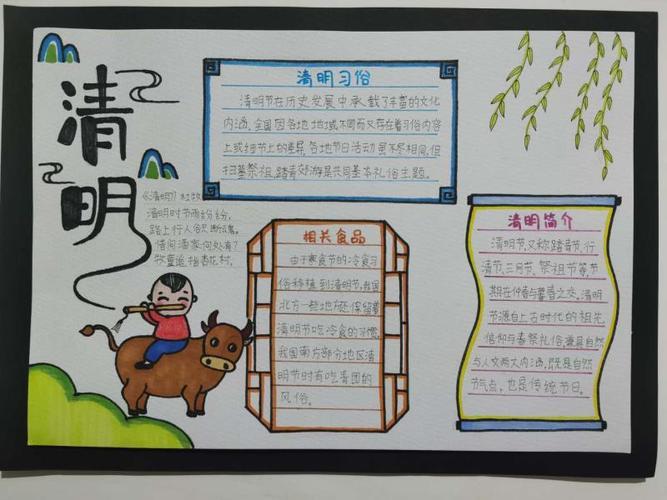 清明
《清明》杜牧
清明时节雨纷纷，
路上行人欲断魂。
借问酒家何处有？
牧童遥指杏花村。
清明习俗
清明节在历史发展中承载了丰富的文化
内涵，全国因各地地域不同而又存在着习俗内容
上或细节上的差异，各地节日活动虽不尽相同，但
扫墓祭祖、踏青郊游是共同基本礼俗主题。
相关食品
由于寒食节的冷食习
俗移植到清明节，我国
北方一些地方还保留着
清明节吃冷食的习惯，
我国南方部分地区清
明节时有吃青团的
风俗。
清明简介
清明节，又称踏青节、行
清节、三月节、祭祖节等，节
期在仲春与暮春之交。清明
节源自上古时代的祖先
信仰与春祭礼俗，兼具自然
与人文两大内涵，既是自然
节气点，也是传统节日。